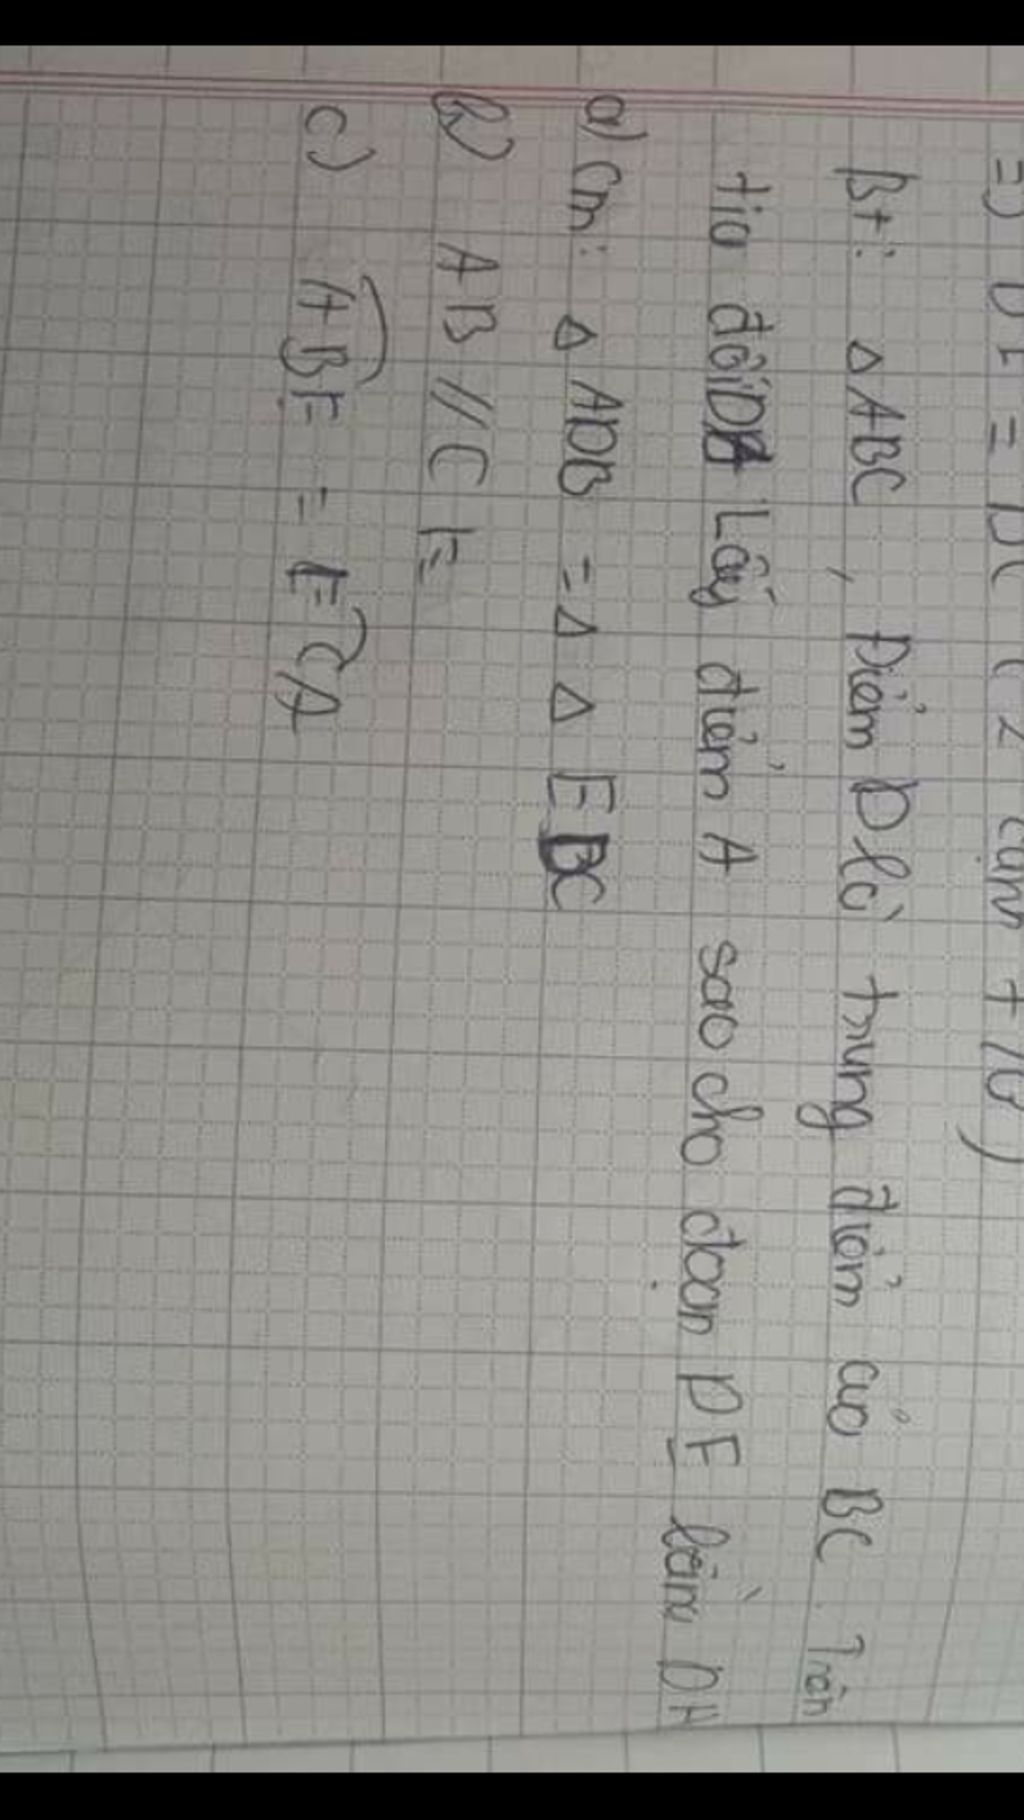 =) DE = DC ( 2 cạnh + 10 )
Bt: Δ ABC , Điểm D là trung điểm của BC. Trên
tia đối DA Lấy điểm A sao cho đoạn DE bằng DA
a) Cm: Δ ADB = Δ Δ EDC
b) AB // CE
c) ABE = ECA